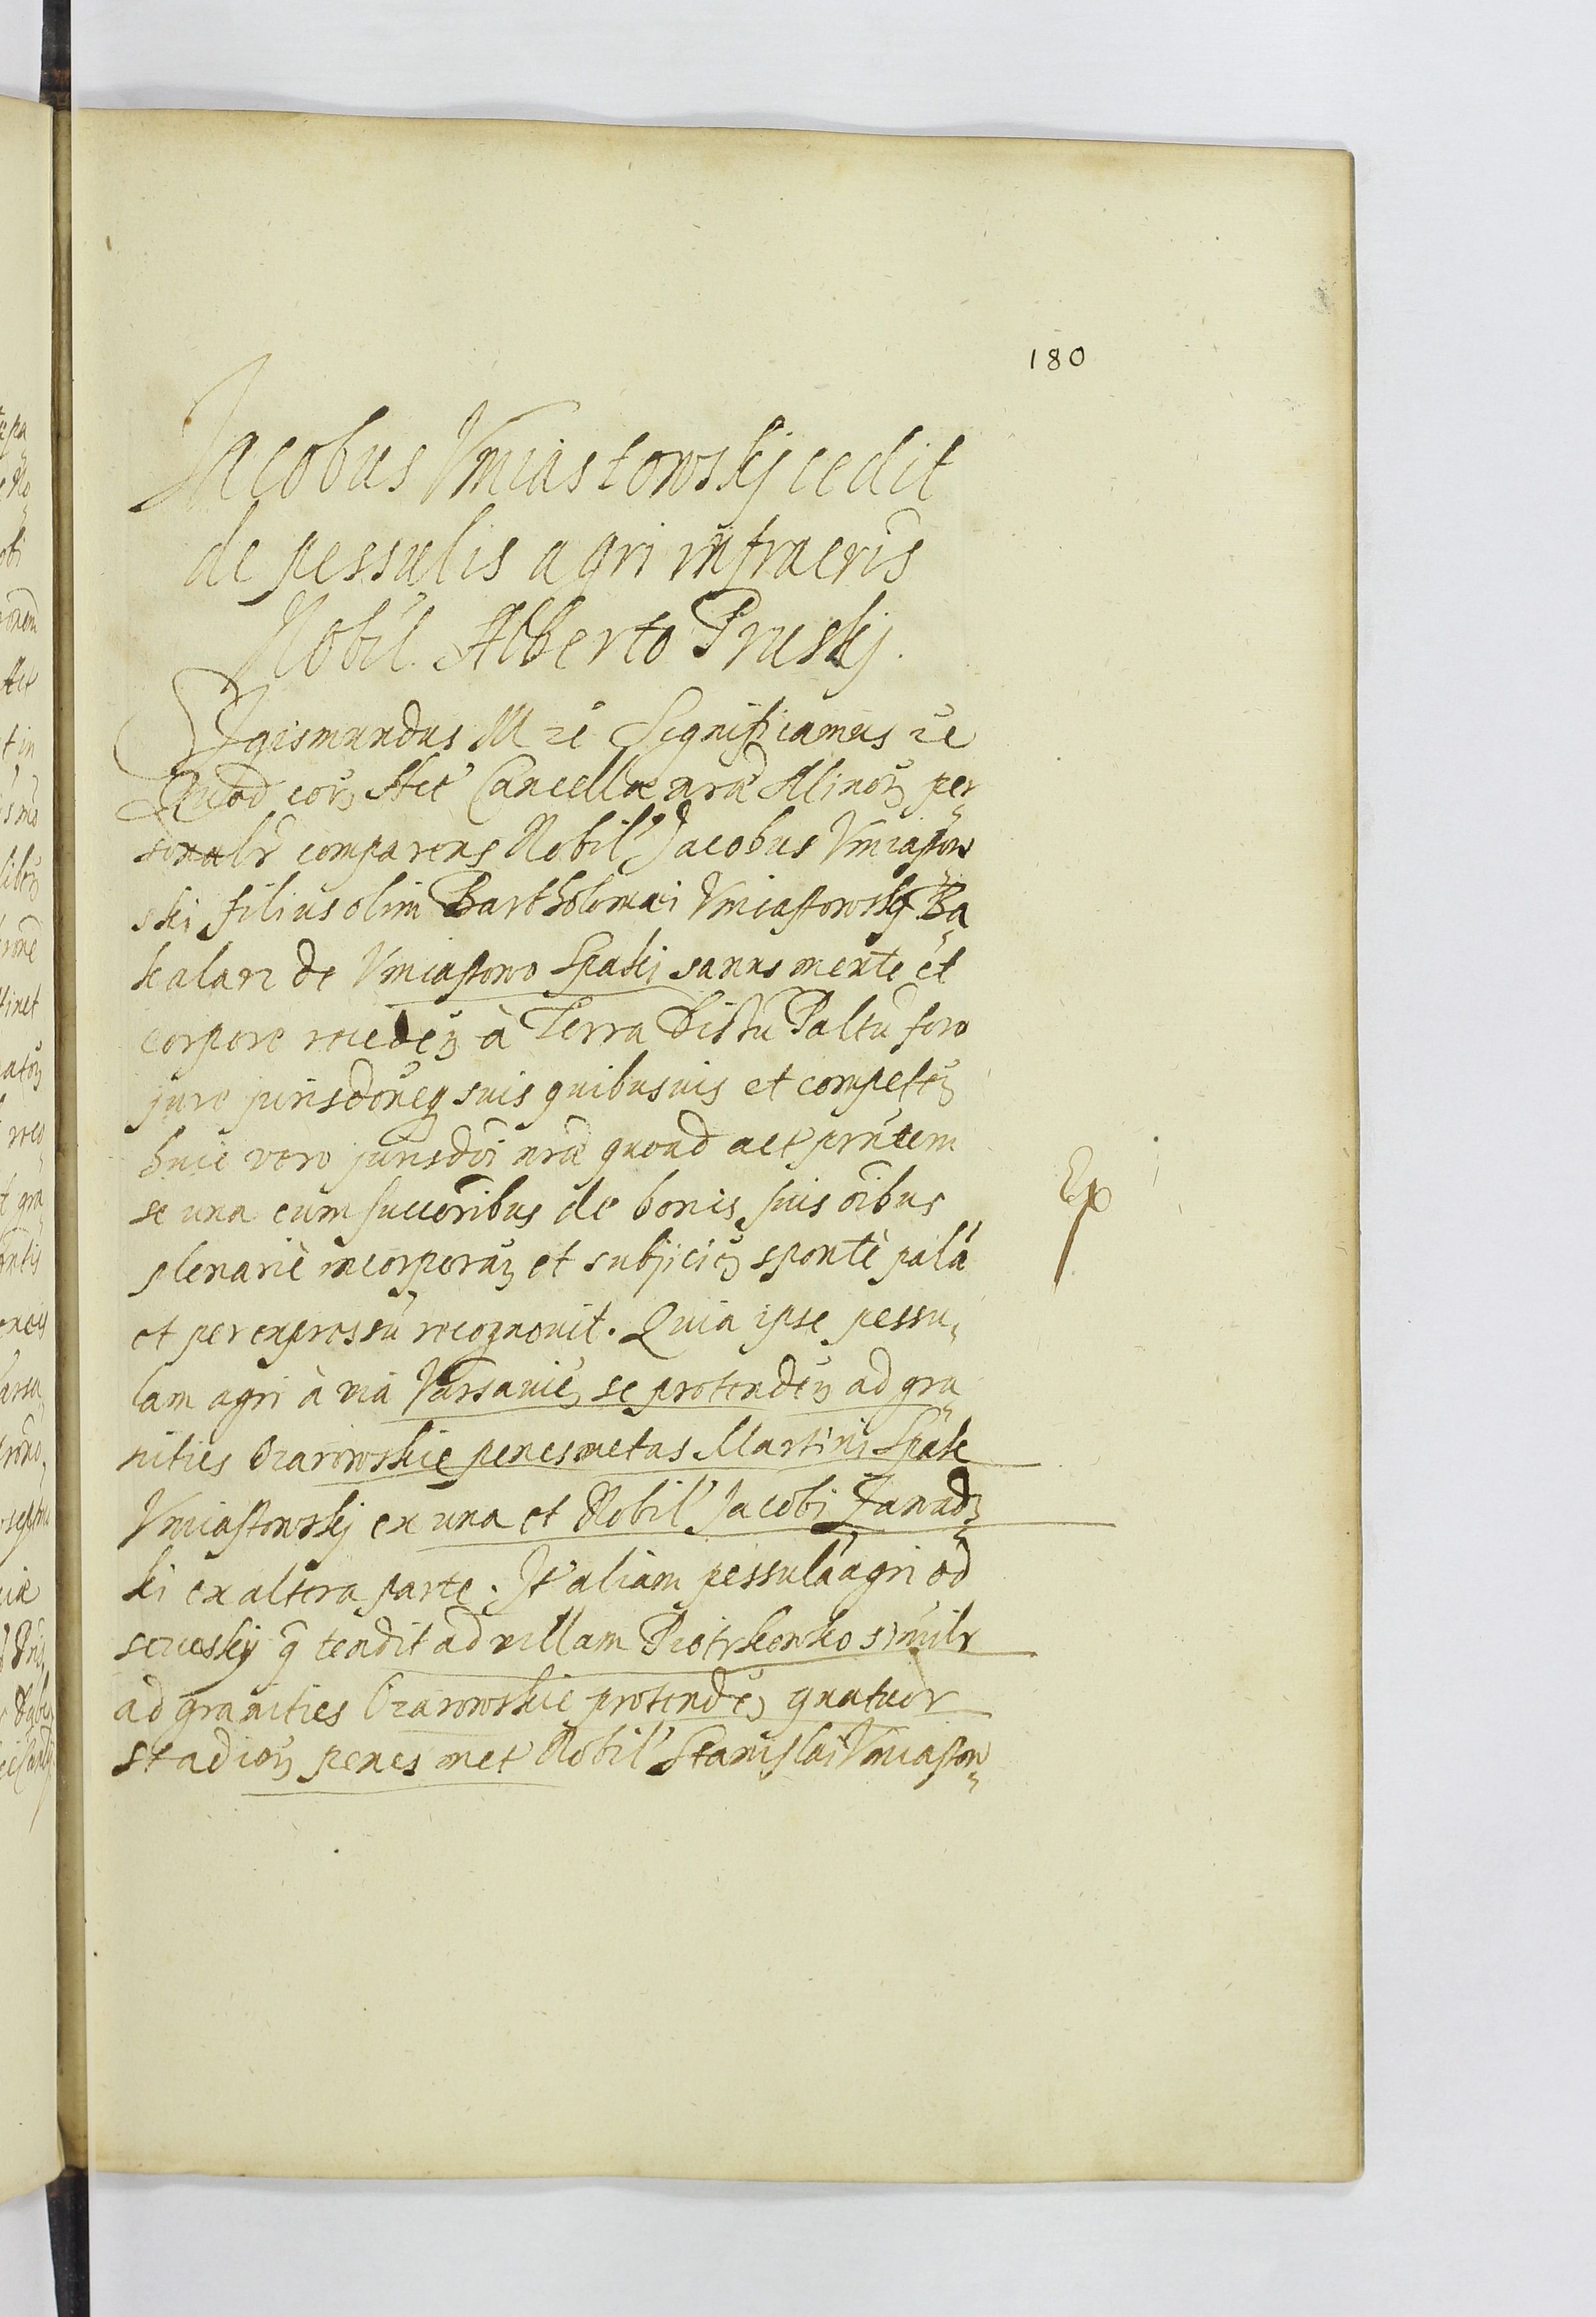 180
Jacobus Vmiastowskj cedit
de pessulis agri infracris
Nobil. Alberto Pruskj.
Sigismundus III zc Significamus zc
Quod corz Act Cancellae nrae Minorz per,
sonalr comparens Nobil' Jacobus Vmiastow
ski filius olim Bartholomaei Vmiastowskj Ba,
kalarz de Vmiastowo Spaki sanus mente et
corpore à Terra Distu Paltu foro
jure jurisdoneq suis quibusuis et competez
huic vero jurisdoi nrae quoad act prntem
se una cum succoribus de bonis suis oibus
plenariè incorporaz et subjiciez spontè pala
et per expressu recognouit. Quia ipse pessu,
lam agri à via Varsauiez se protendez ad gra,
nities Ozarowskie penes metas Martini Spak
Vmiastowskj ex una et Nobil' Jacobi Zawadz,
ki ex altera parte. It aliam pessula agri od
q tendit ad villam Piotrkowko similr
ad granities Ozarowskie protendez quatuor
stadiorz penes met Nobil' Stanislai Vmiastow,
Ex